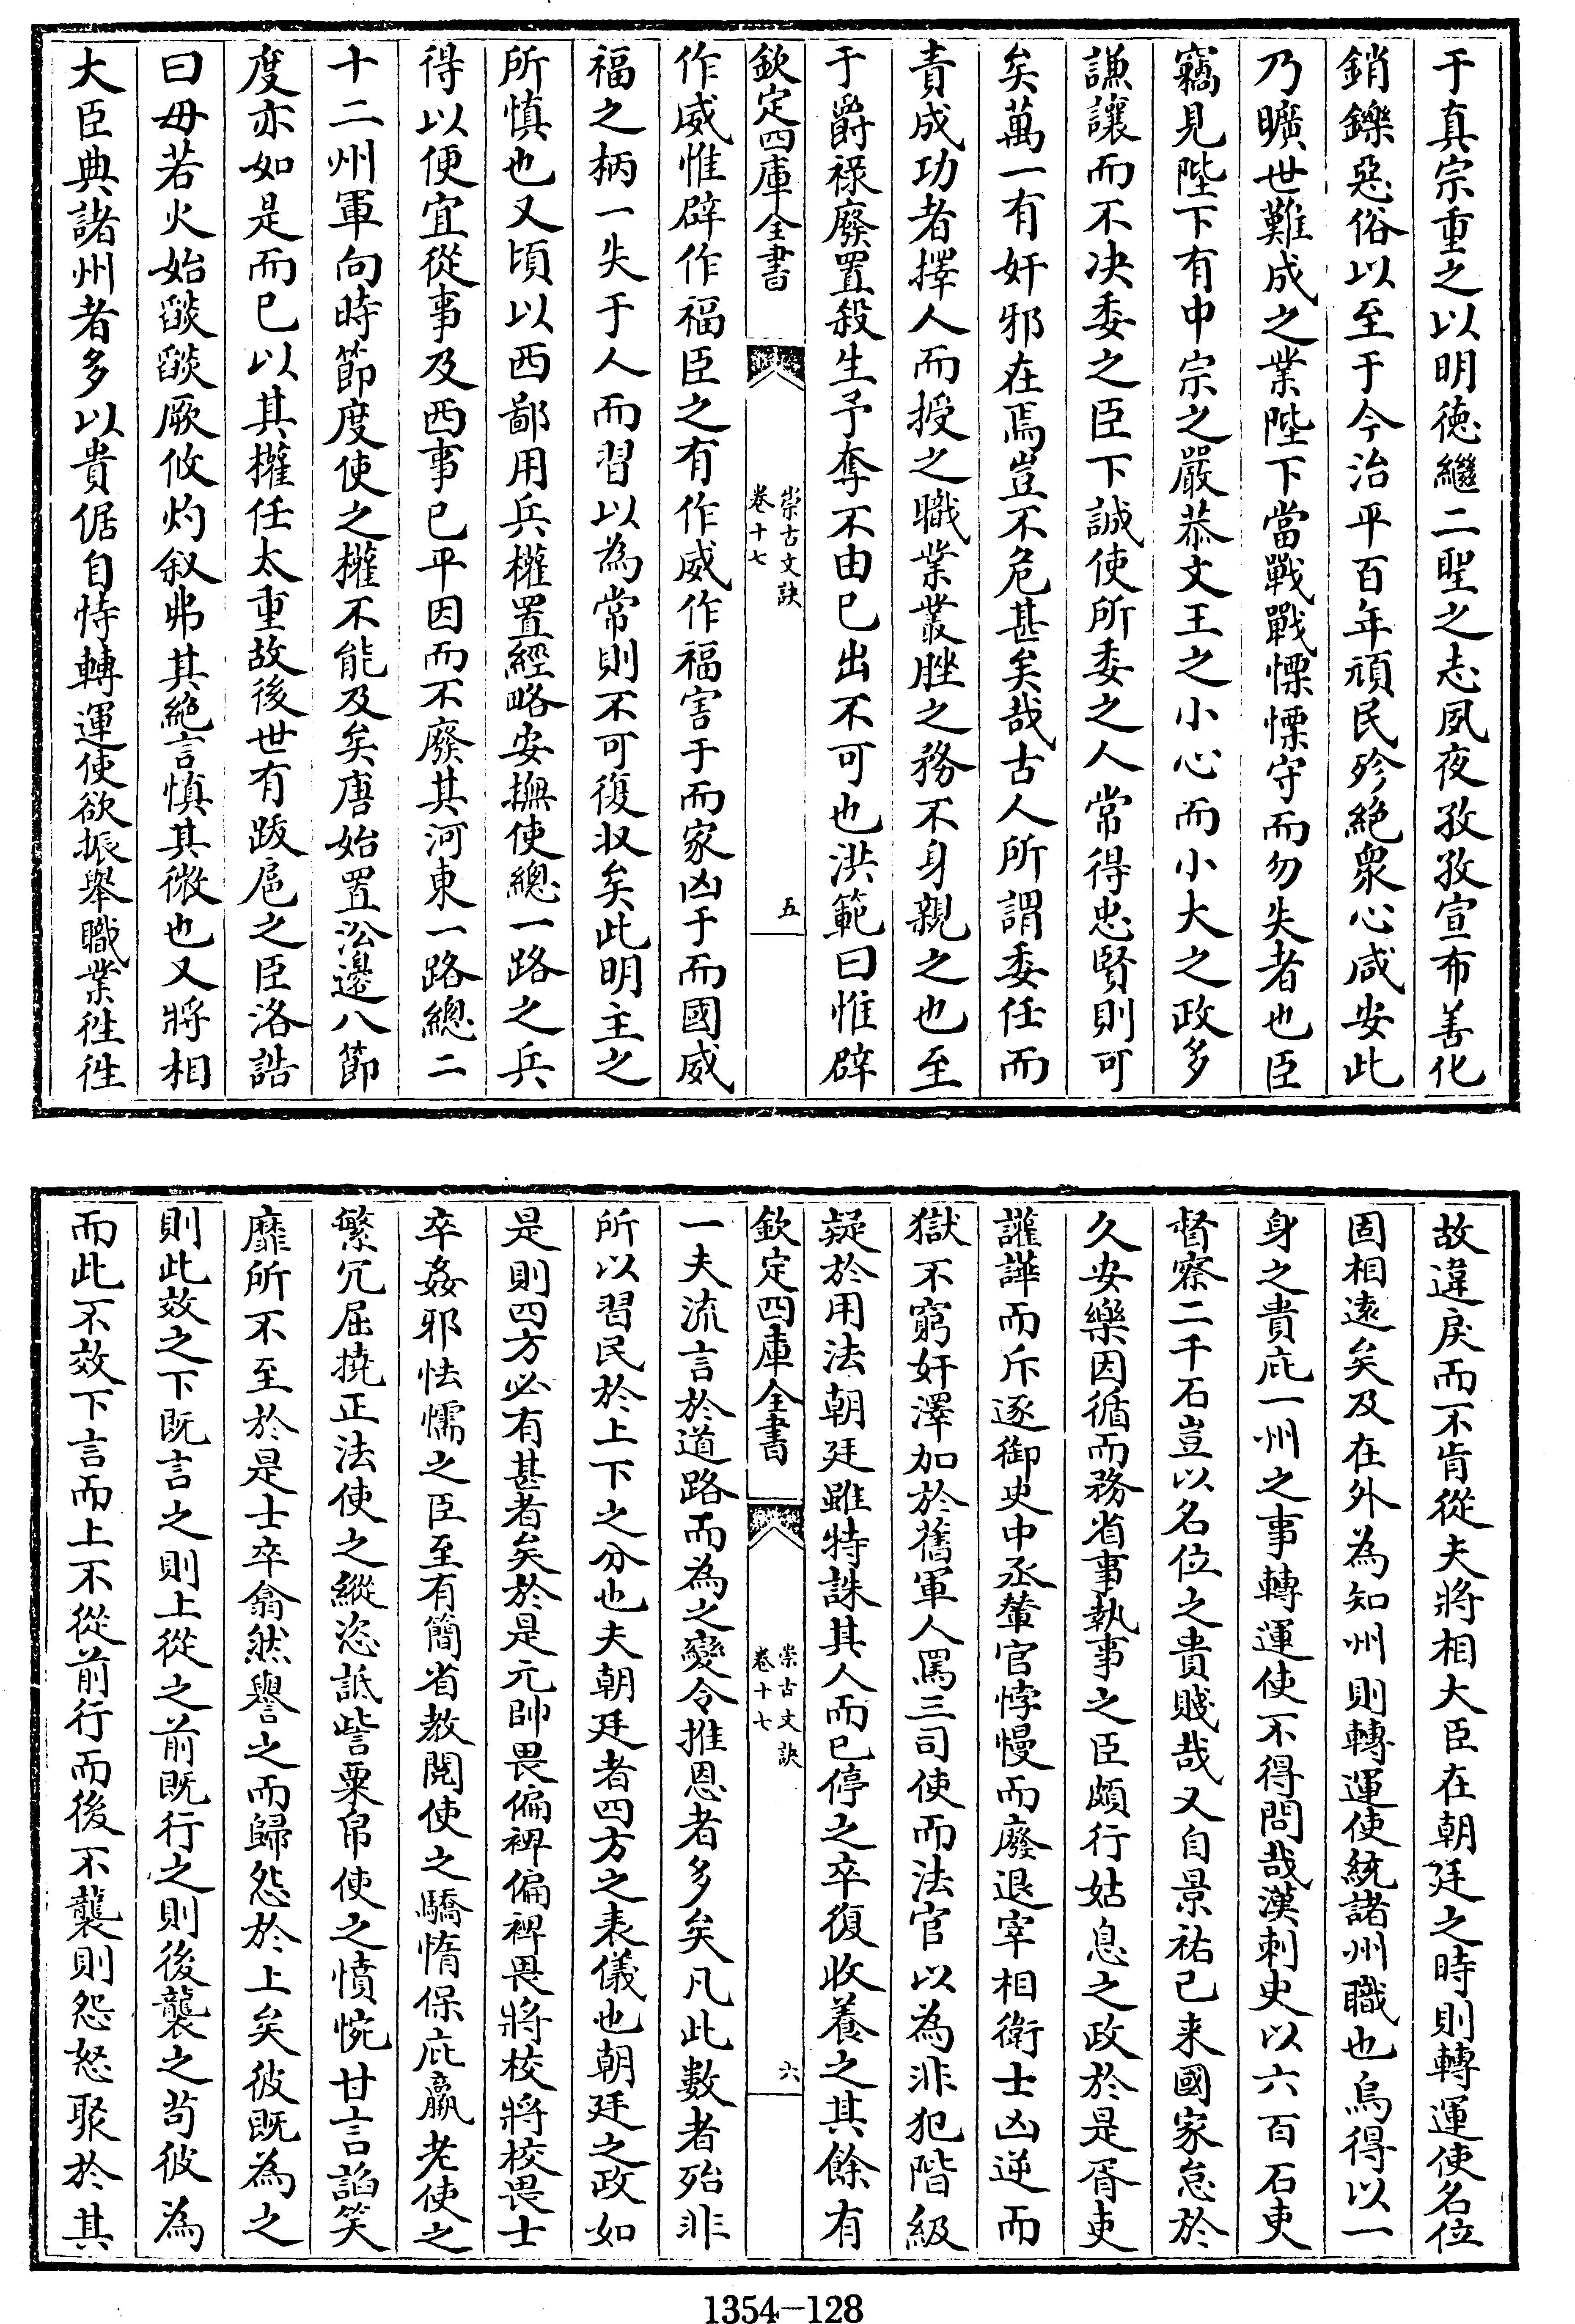 于真宗重之以明徳繼二聖之志夙夜孜孜宣布善化
銷鑠惡俗以至于今治平百年頑民殄絶衆心咸安此
乃曠世難成之業陛下當戰戰慄慄守而勿失者也臣
竊見陛下有中宗之嚴恭文王之小心而小大之政多
謙讓而不决委之臣下誠使所委之人常得忠賢則可
矣萬一有奸邪在焉豈不危甚矣哉古人所謂委任而
責成功者擇人而授之職業叢脞之務不身親之也至
于爵禄廢置殺生予奪不由已出不可也洪範曰惟辟
欽定四庫全書
崇古文訣
卷十七
五
作威惟辟作福臣之有作威作福害于而家凶于而國威
福之柄一失于人而習以為常則不可復収矣此明主之
所慎也又頃以西鄙用兵權置經略安撫使總一路之兵
得以便宜從事及西事已平因而不廢其河東一路總二
十二州軍向時節度使之權不能及矣唐始置沿邊八節
度亦如是而已以其權任太重故後世有跋扈之臣洛誥
曰毋若火始燄燄厥攸灼叙弗其絶言慎其微也又將相
大臣典諸州者多以貴倨自恃轉運使欲振舉職業徃徃
故違戾而不肯從夫將相大臣在朝廷之時則轉運使名位
固相遠矣及在外為知州則轉運使統諸州職也烏得以一
身之貴庇一州之事轉運使不得問哉漢刺史以六百石吏
督察二千石豈以名位之貴賤哉又自景祐已來國家怠於
久安樂因循而務省事執事之臣頗行姑息之政於是胥吏
讙譁而斥逐御史中丞輦官悖慢而廢退宰相衛士凶逆而
獄不窮奸澤加於舊軍人罵三司使而法官以為非犯階級
疑於用法朝廷雖特誅其人而已停之卒復收養之其餘有
欽定四庫全書
崇古文訣
卷十七
六
一夫流言於道路而為之變令推恩者多矣凡此數者殆非
所以習民於上下之分也夫朝廷者四方之表儀也朝廷之政如
是則四方必有甚者矣於是元帥畏偏裨偏裨畏將校將校畏士
卒姦邪怯懦之臣至有簡省教閱使之驕惰保庇羸老使之
繁冗屈撓正法使之縱恣詆訾粟帛使之憤惋甘言諂笑
靡所不至於是士卒翕然譽之而歸怨於上矣彼既為之
則此效之下既言之則上從之前既行之則後襲之茍彼為
而此不效下言而上不從前行而後不襲則怨怒聚於其
1354-128